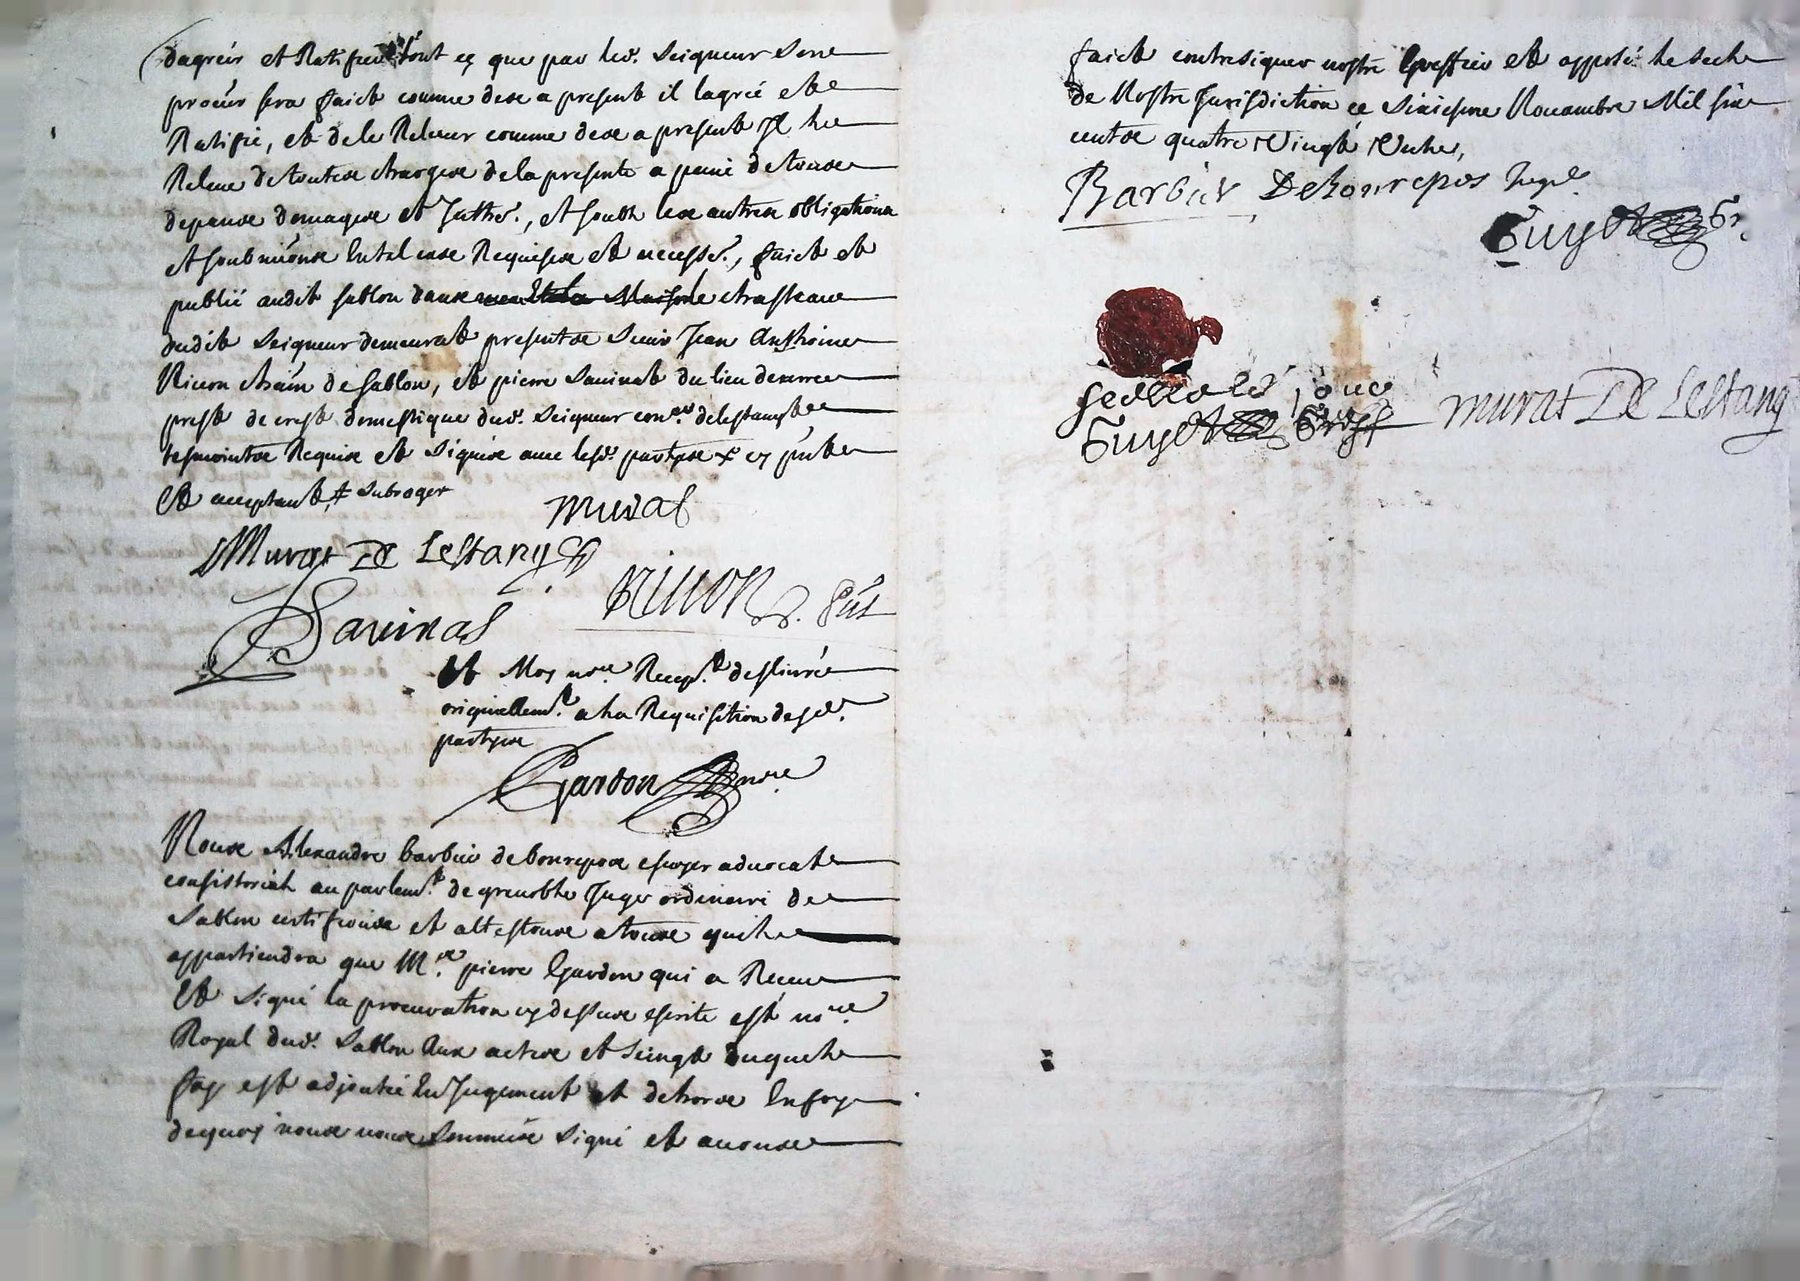 dagréér et Ratifier tout ce que par led. Seigneur son
procur sera faict comme des a present il lagréé et
Ratifie, et de le Relever comme des a present Il le
Releve de toutes charges de la presente a peine de tous
depens domages et Inthr., et soubz les autres obligations
et soubmiôns En tel cas Requises et necessr., faict et
publié audit Sablon dans chasteau
dudit Seigneur demeurat presents Sieur Jean Anthoine
Ricon chain de Sablon, et pierre Savinat du lieu
prest de crest domestique dud. Seigneur con.er delestang
tesmointz Requis et Signés avec lesd. partyes + cy pnte
Et aceptant, + subroger
Murat
Murat De Lestang
Savinas
RICON p. pnt
Et Moy nore Recep.t deslivré
originellem.t a la Requisition desd.
partyes
Gardon nore
Nous Alexandre barbier de bonrepos escuyer advocat
consistorial au parlem.t de grenoble Juge ordinaire de
Sablon certifions et attestons a tous quil
appartiendra que M.re pierre Gardon qui a Receu
Et Signé la procuration cy dessus escrite est nore
Royal dud. Sablon Aux actes et Seings duquel
foy est adjoutée En Jugement et dehors En foy
dequoy nous nous Sommes Signé et avons
faict contresigner nostre Greffier et apposé le scel
de Nostre Jurisdiction ce Sixiesme Novambre Mil six
cents quatre Vingt
Barbier De bonrepos Juge
Guyot Gr.
Guyot Greff
Murat De Lestang